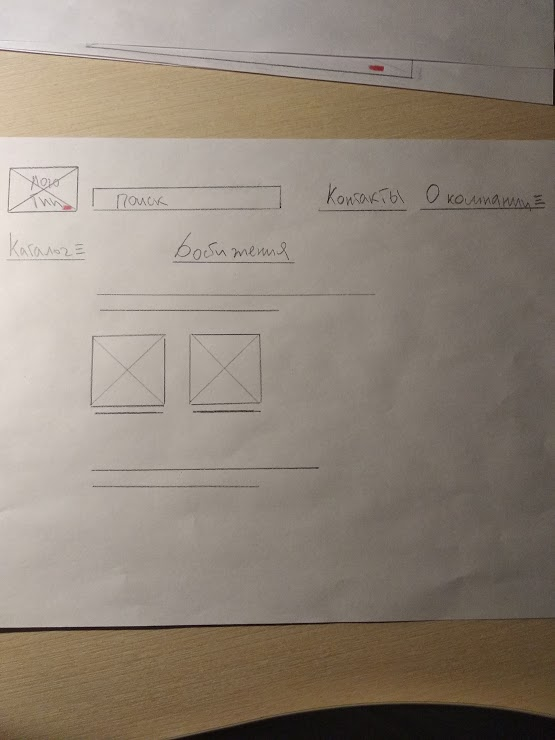 Лого
Тип
Поиск
Контакты
О компании
Каталог
Достижения